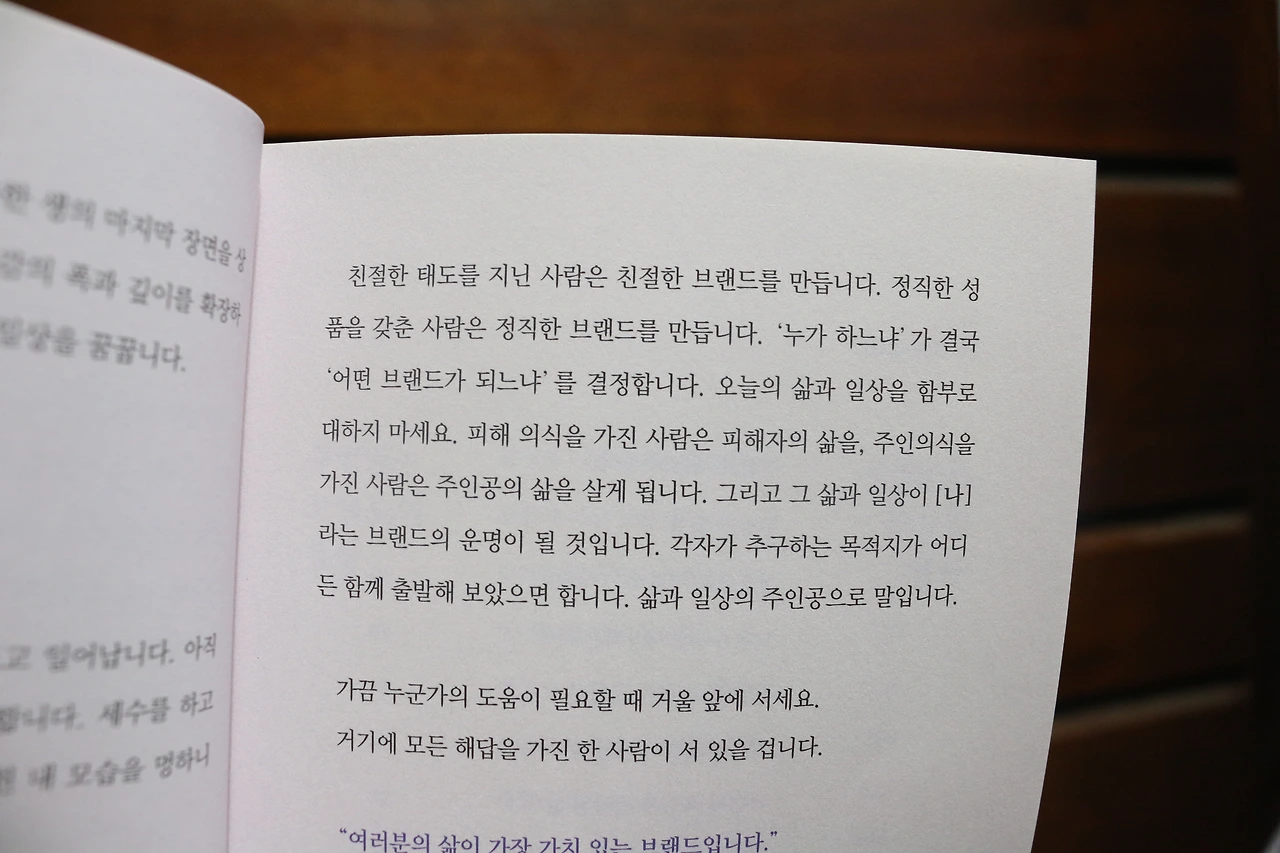 생의 마지막 장면을 상
폭과 깊이를 확장하
일상을 꿈꿉니다.
일어납니다. 아직
세수를 하고
내 모습을 멍하니
친절한 태도를 지닌 사람은 친절한 브랜드를 만듭니다. 정직한 성
품을 갖춘 사람은 정직한 브랜드를 만듭니다. ‘누가 하느냐’가 결국
‘어떤 브랜드가 되느냐’를 결정합니다. 오늘의 삶과 일상을 함부로
대하지 마세요. 피해 의식을 가진 사람은 피해자의 삶을, 주인의식을
가진 사람은 주인공의 삶을 살게 됩니다. 그리고 그 삶과 일상이 [나]
라는 브랜드의 운명이 될 것입니다. 각자가 추구하는 목적지가 어디
든 함께 출발해 보았으면 합니다. 삶과 일상의 주인공으로 말입니다.
가끔 누군가의 도움이 필요할 때 거울 앞에 서세요.
거기에 모든 해답을 가진 한 사람이 서 있을 겁니다.
“여러분의 삶이 가장 가치 있는 브랜드입니다.”